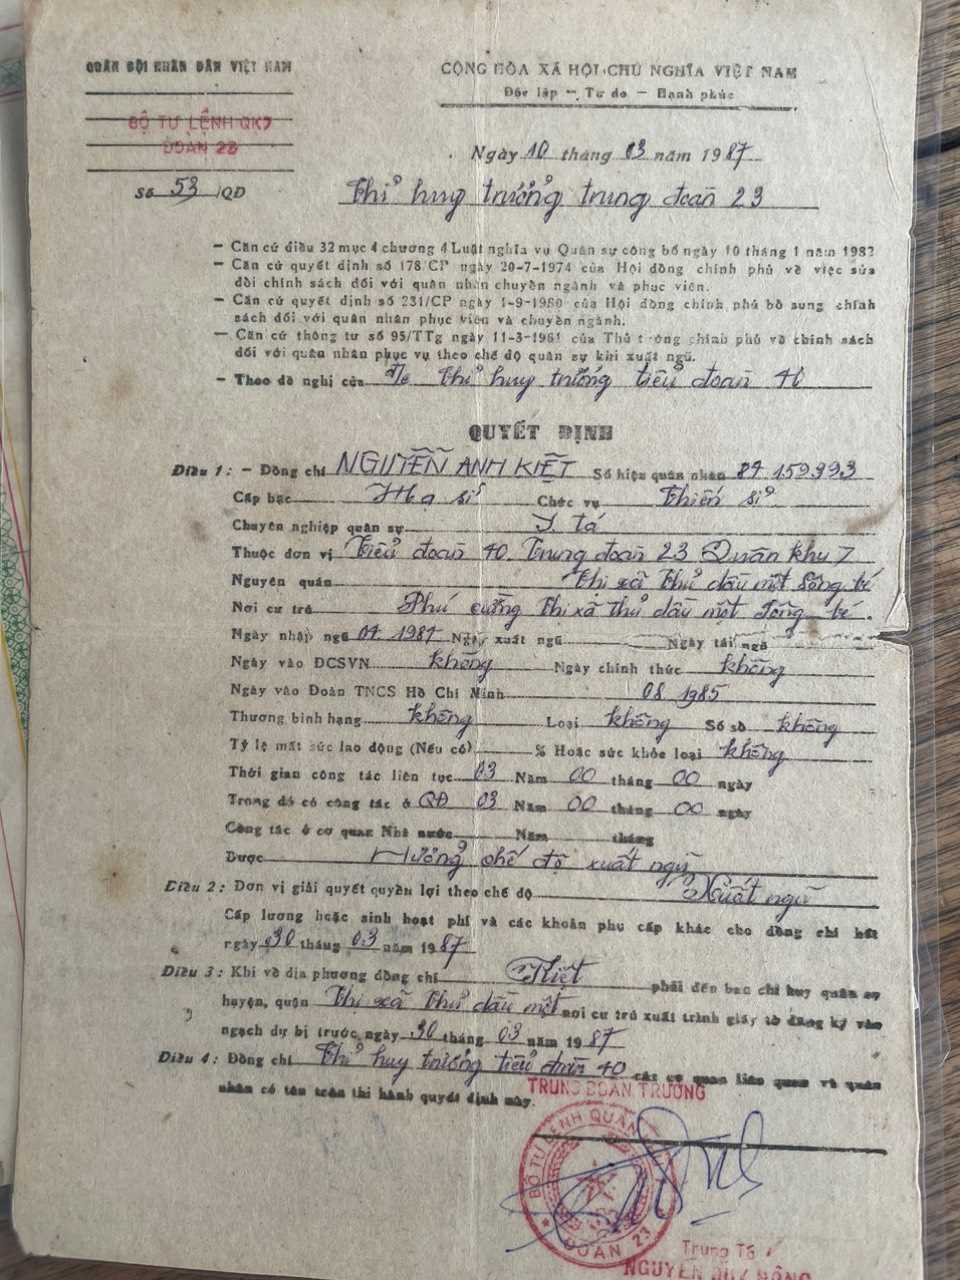 QUÂN ĐỘI NHÂN DÂN VIỆT NAM
BỘ TƯ LỆNH QK7
ĐOÀN 23
Số 53/QĐ
CỘNG HÒA XÃ HỘI CHỦ NGHĨA VIỆT NAM
Độc lập - Tự do - Hạnh phúc
Ngày 10 tháng 03 năm 1987
Chỉ huy trưởng trung đoàn 23
- Căn cứ điều 32 mục 4 chương 4 Luật nghĩa vụ Quân sự công bố ngày 10 tháng 1 năm 1982
- Căn cứ quyết định số 178/CP ngày 20-7-1974 của Hội đồng chính phủ về việc sửa
đổi chính sách đối với quân nhân chuyển ngành và phục viên.
- Căn cứ quyết định số 231/CP ngày 1-9-1980 của Hội đồng chính phủ bổ sung chính
sách đối với quân nhân phục viên và chuyển ngành.
- Căn cứ thông tư số 95/TTg ngày 11-3-1961 của Thủ tướng chính phủ về chính sách
đối với quân nhân phục vụ theo chế độ quân sự khi xuất ngũ.
- Theo đề nghị của Đ/c Chỉ huy trưởng tiểu đoàn 40
QUYẾT ĐỊNH
Điều 1: - Đồng chí NGUYỄN ANH KIỆT Số hiệu quân nhân 84 159993
Cấp bậc Hạ sĩ Chức vụ Chiến sĩ
Chuyên nghiệp quân sự Y tá
Thuộc đơn vị Tiểu đoàn 40. Trung đoàn 23 Quân khu 7
Nguyên quán Thị xã Thủ dầu một Sông bé
Nơi cư trú Phú cường Thị xã thủ dầu một Sông bé.
Ngày nhập ngũ 04 1984 Ngày xuất ngũ Ngày tái ngũ
Ngày vào ĐCSVN không Ngày chính thức không
Ngày vào Đoàn TNCS Hồ Chí Minh 08 1985
Thương binh hạng không Loại không Số sổ không
Tỷ lệ mất sức lao động (Nếu có) % Hoặc sức khỏe loại không
Thời gian công tác liên tục 03 Năm 00 tháng 00 ngày
Trong đó có công tác ở QĐ 03 Năm 00 tháng 00 ngày
Công tác ở cơ quan Nhà nước Năm tháng
Được Hưởng chế độ xuất ngũ
Điều 2: Đơn vị giải quyết quyền lợi theo chế độ Xuất ngũ
Cấp lương hoặc sinh hoạt phí và các khoản phụ cấp khác cho đồng chí hết
ngày 30 tháng 03 năm 1987
Điều 3: Khi về địa phương đồng chí Kiệt phải đến ban chỉ huy quân sự
huyện, quận Thị xã Thủ dầu một nơi cư trú xuất trình giấy tờ đăng ký vào
ngạch dự bị trước ngày 30 tháng 03 năm 1987
Điều 4: Đồng chí Chỉ huy trưởng tiểu đoàn 40 các cơ quan liên quan và quân
nhân có tên trên thi hành quyết định này.
TRUNG ĐOÀN TRƯỞNG
BỘ TƯ LỆNH QUÂN
ĐOÀN 23
Trung Tá
NGUYỄN